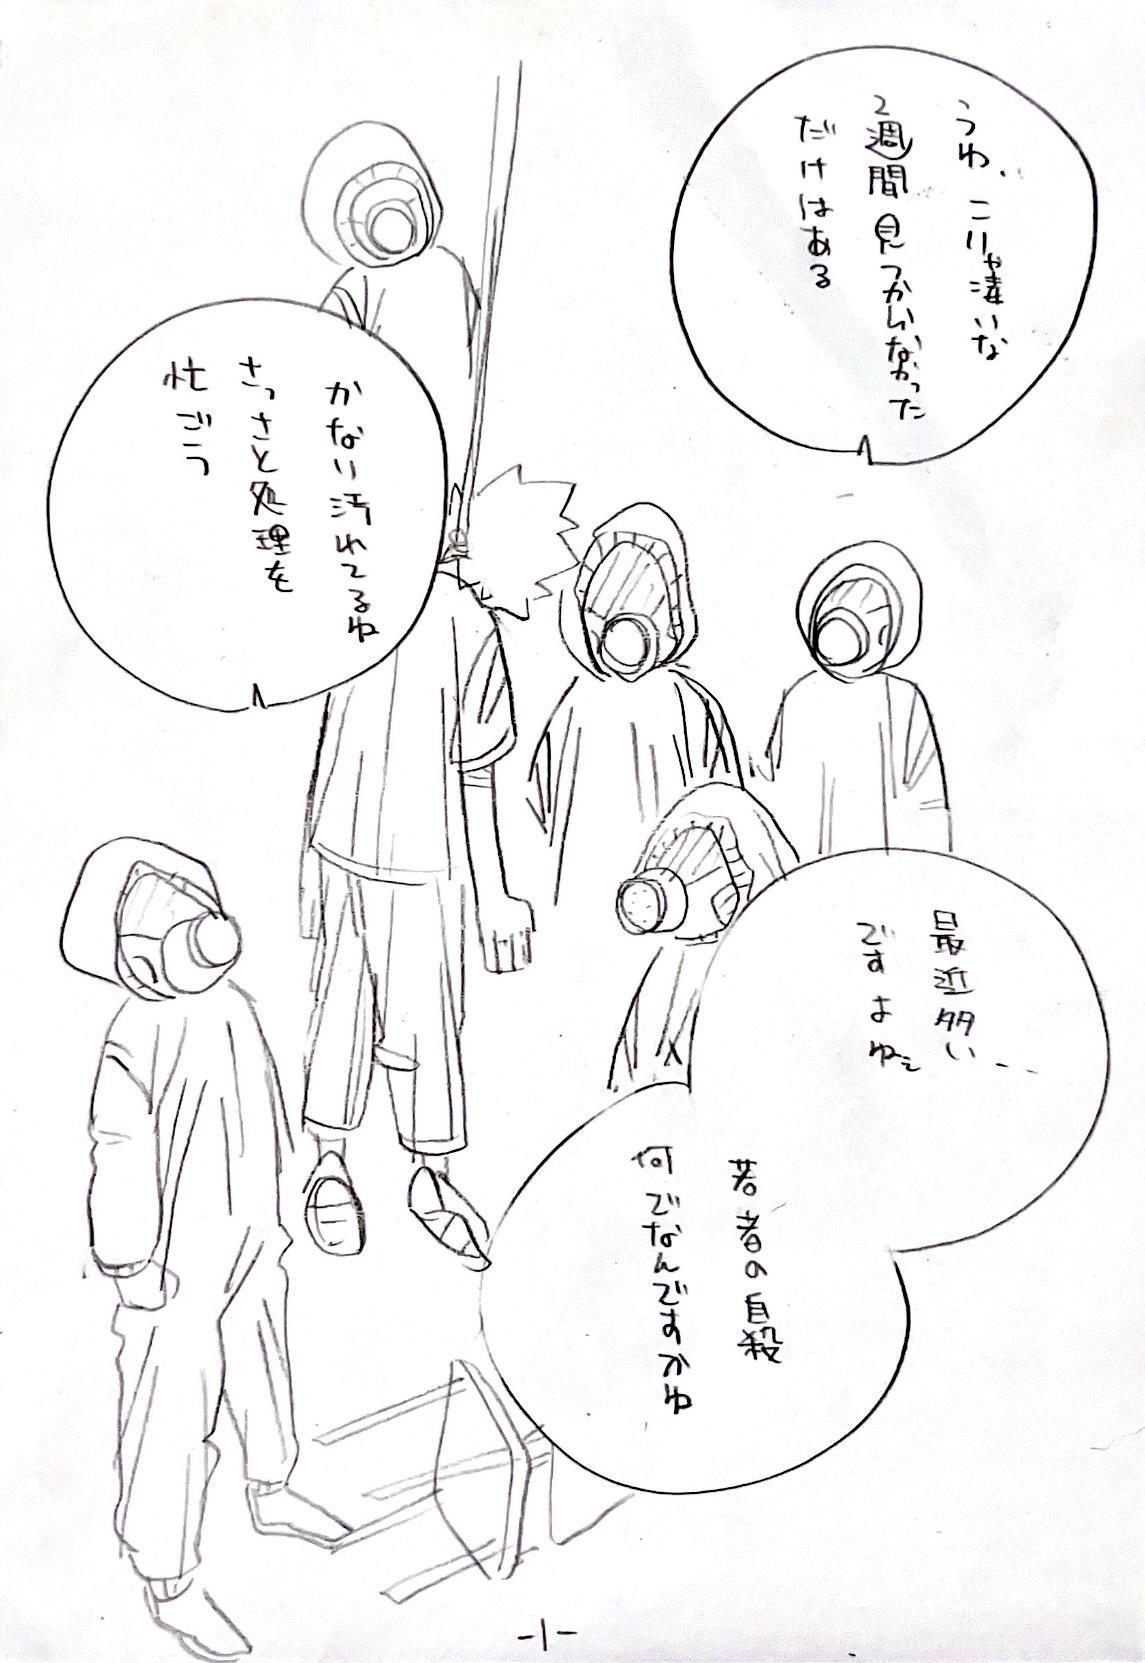 うわ、こりゃ凄いな
2週間見つからなかった
だけはある
かなり汚れてるね
さっさと処理を
急ごう
最近多い…
ですよねェ
若者の自殺
何でなんですかね
-1-